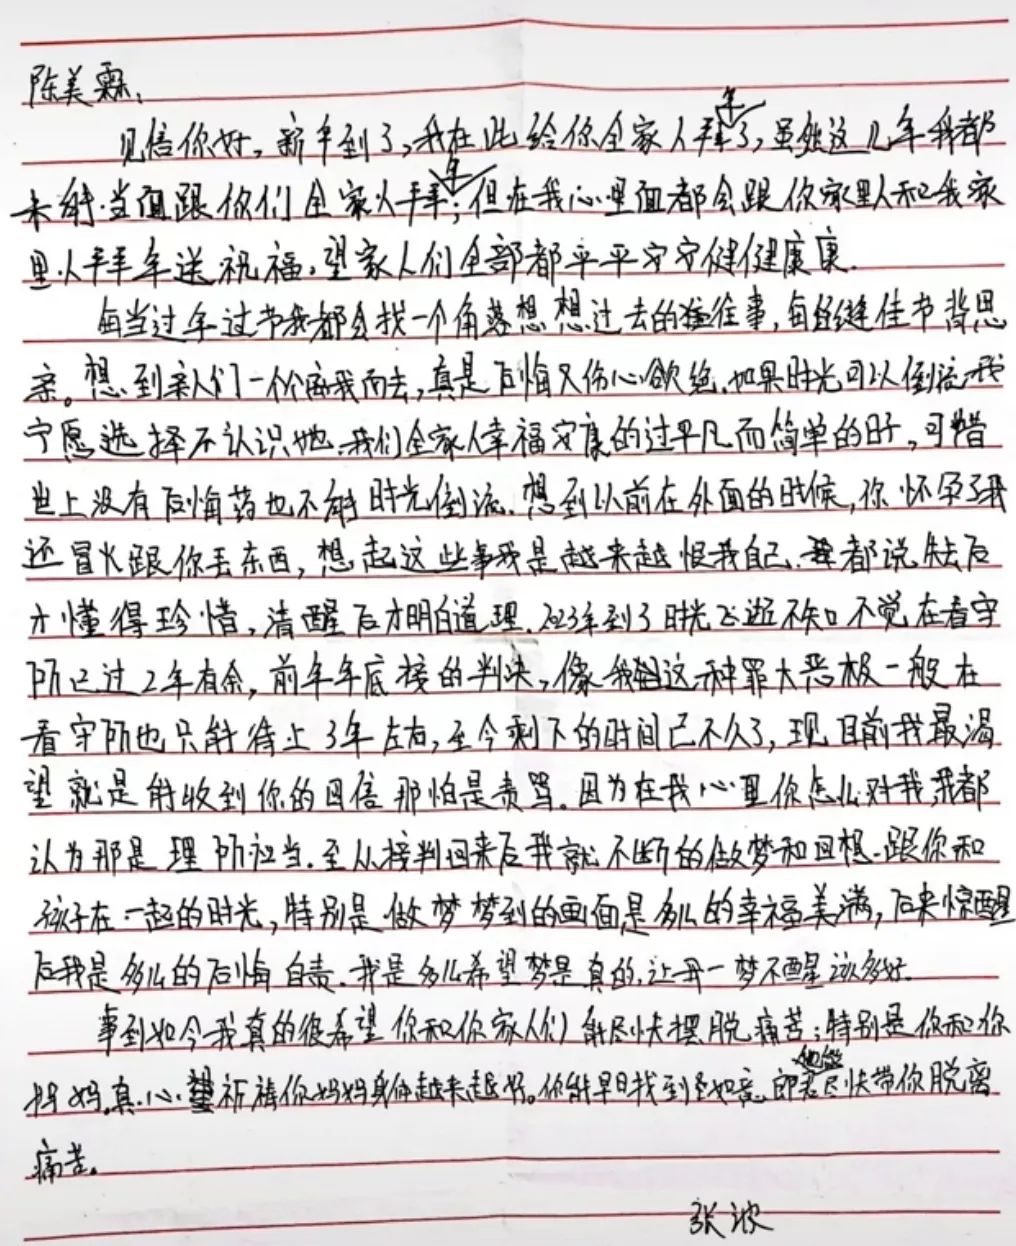 陈美霖:
见信你好,新年到了,我在此给你全家人拜年了,虽然这几年我都
未能当面跟你们全家人拜年,但在我心里面都会跟你家里人和我家
里人拜年送祝福。望家人们全部都平平安安健健康康.
每当过年过节我都会找一个角落想想过去的往事,每逢佳节背思
亲。想到亲人们一个个离我而去,真是后悔又伤心欲绝.如果时光可以倒流我
宁愿选择不认识她.我们全家人幸福安康的过平凡而简单的日子,可惜
世上没有后悔药也不能时光倒流.想到以前在外面的时候,你怀孕了我
还冒火跟你丢东西,想起这些事我是越来越恨我自己.都说失去后
才懂得珍惜,清醒后才明白道理.2023年到了时光飞逝不知不觉在看守
所已过2年有余,前年年底接的判决,像我这种罪大恶极一般在
看守所也只能待上3年左右,至今剩下的时间已不久了,现目前我最渴
望就是能收到你的回信那怕是责骂。因为在我心里你怎么对我,我都
认为那是理所当.至从接判回来后我就不断的做梦和回想.跟你和
孩子在一起的时光,特别是做梦梦到的画面是多么的幸福美满,后来惊醒
后我是多么的后悔自责.我是多么希望梦是真的,让我一梦不醒该多好.
事到如今我真的很希望你和你家人们能尽快摆脱痛苦;特别是你和你
妈妈.真心祈祷你妈妈身体越来越好。你能早日找到如意郎君他能尽快带你脱离
痛苦。
张波